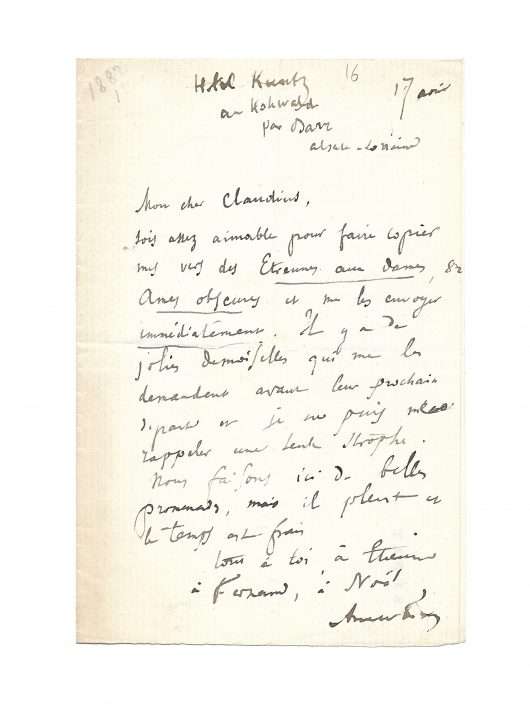 1887
16
Hôtel Kuntz
au Hohwald
par Barr
alsace-Lorraine
17 août
Mon cher Claudius,
sois assez aimable pour faire copier
mes vers des Etrennes aux dames,
Ames obscures et me les envoyer
immédiatement. Il y a de
jolies demoiselles qui me les
demandent avant leur prochain
départ et je ne puis me
rappeler une seule strophe.
Nous faisons ici de belles
promenades, mais il pleut et
le temps est frais
tout à toi, à Etienne
à Fernand, à Noël